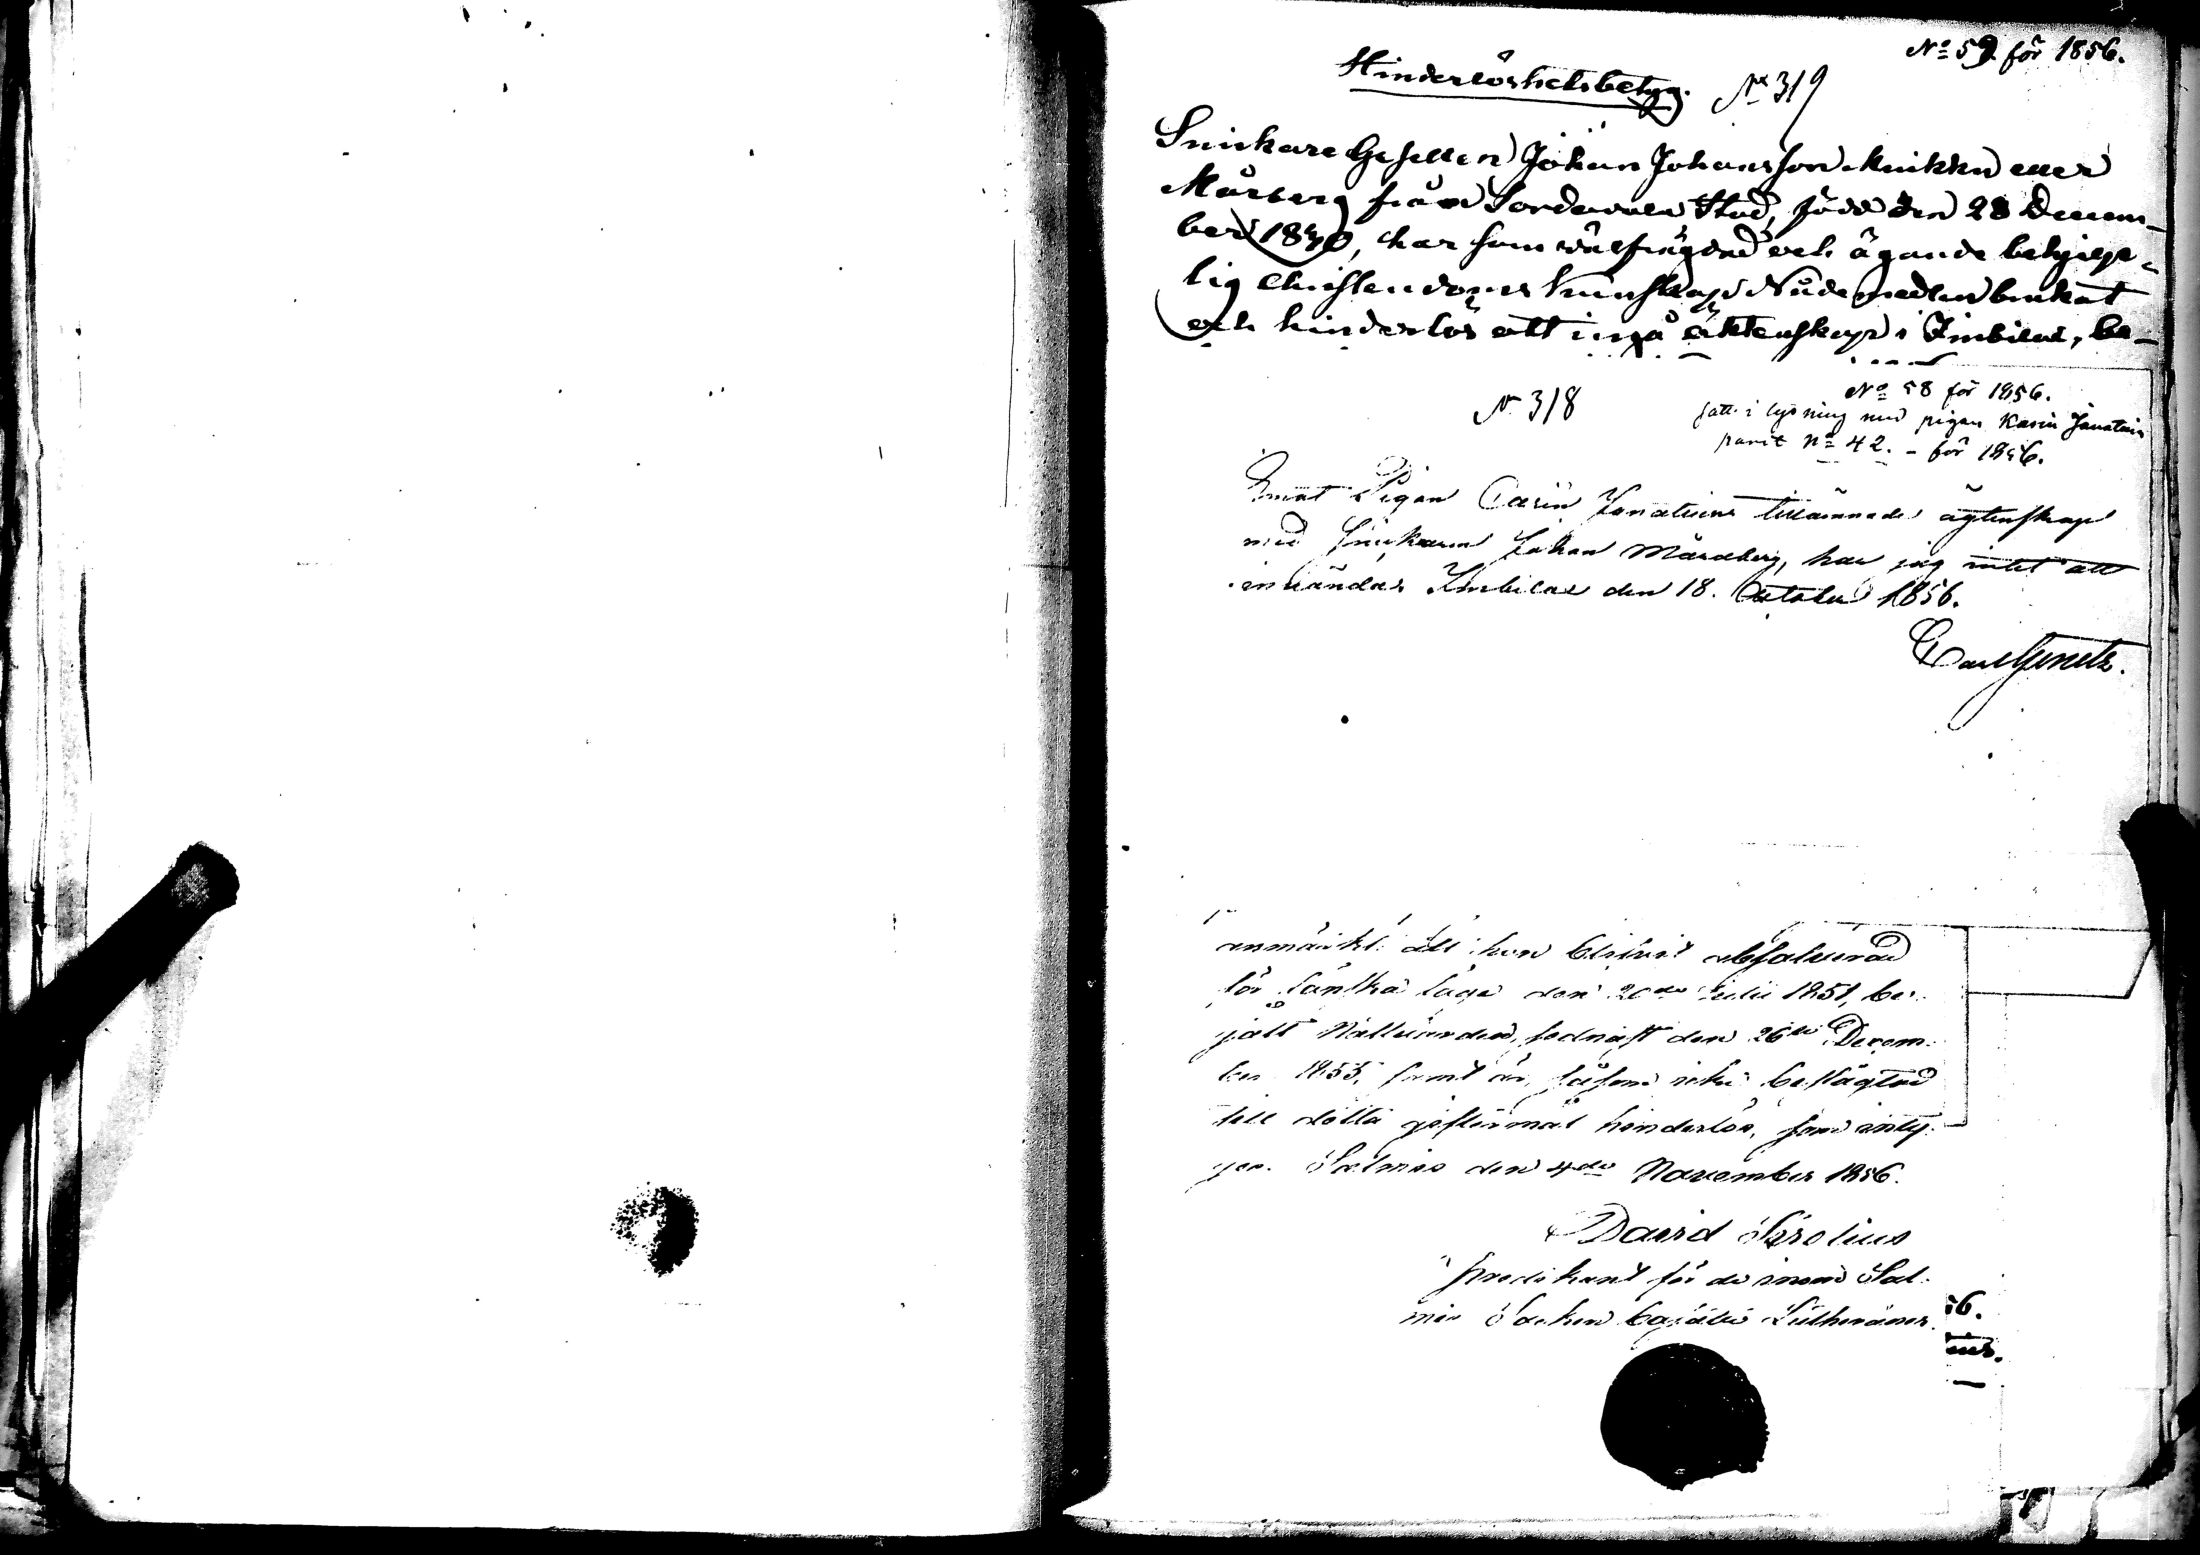 No 59 för 1856.
Hinderlöshetsbetyg. No 319
Snickare Gesellen Johan Johansson eller
från Sordavala Stad, född den 28 Decem-
ber 1830, har som välfrägdad och ägande behjelpe-
lig Christendoms kunskap Nådemedlen brukat
och hinderlös att ingå äktenskap i Imbilax, be-
No 58 för 1856.
No 318
tatt i lysning med pigan Karin Janatuin
No 42. - för 1856.
Emot Pigan Carin Janatuins tillämnade ägtenskap
med Snickaren Johan Mårdberg, har jag intet att
invända Imbilax den 18. October 1856.
Carl Genetz.
anmärkt att hon blifvit absolverad
för lönska läge den 20de Julii 1851, be-
gått Nattvarden sednast den 26de Decem-
ber 1855, samt är, såsom icke beslägtad
till detta giftermål hinderlös, som inty-
gar. Salmis den 4de November 1856.
David Sirelius
Predikant för de inom Sal-
mis Socken bosatte Lutheraner.
56.